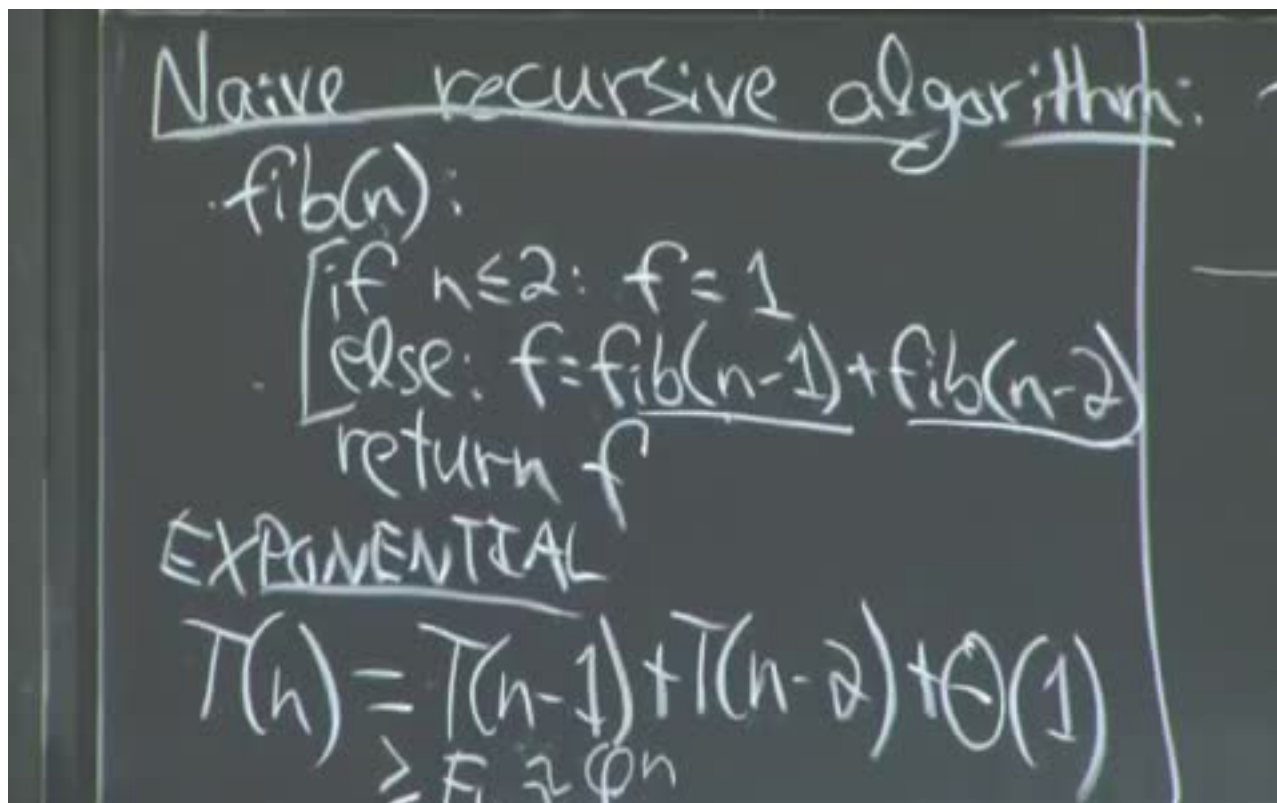 Naive recursive algorithm:
fib(n):
if n≤2: f=1
else: f=fib(n-1)+fib(n-2)
return f
EXPONENTIAL
T(n)=T(n-1)+T(n-2)+Θ(1)
≥ F ≈ φn